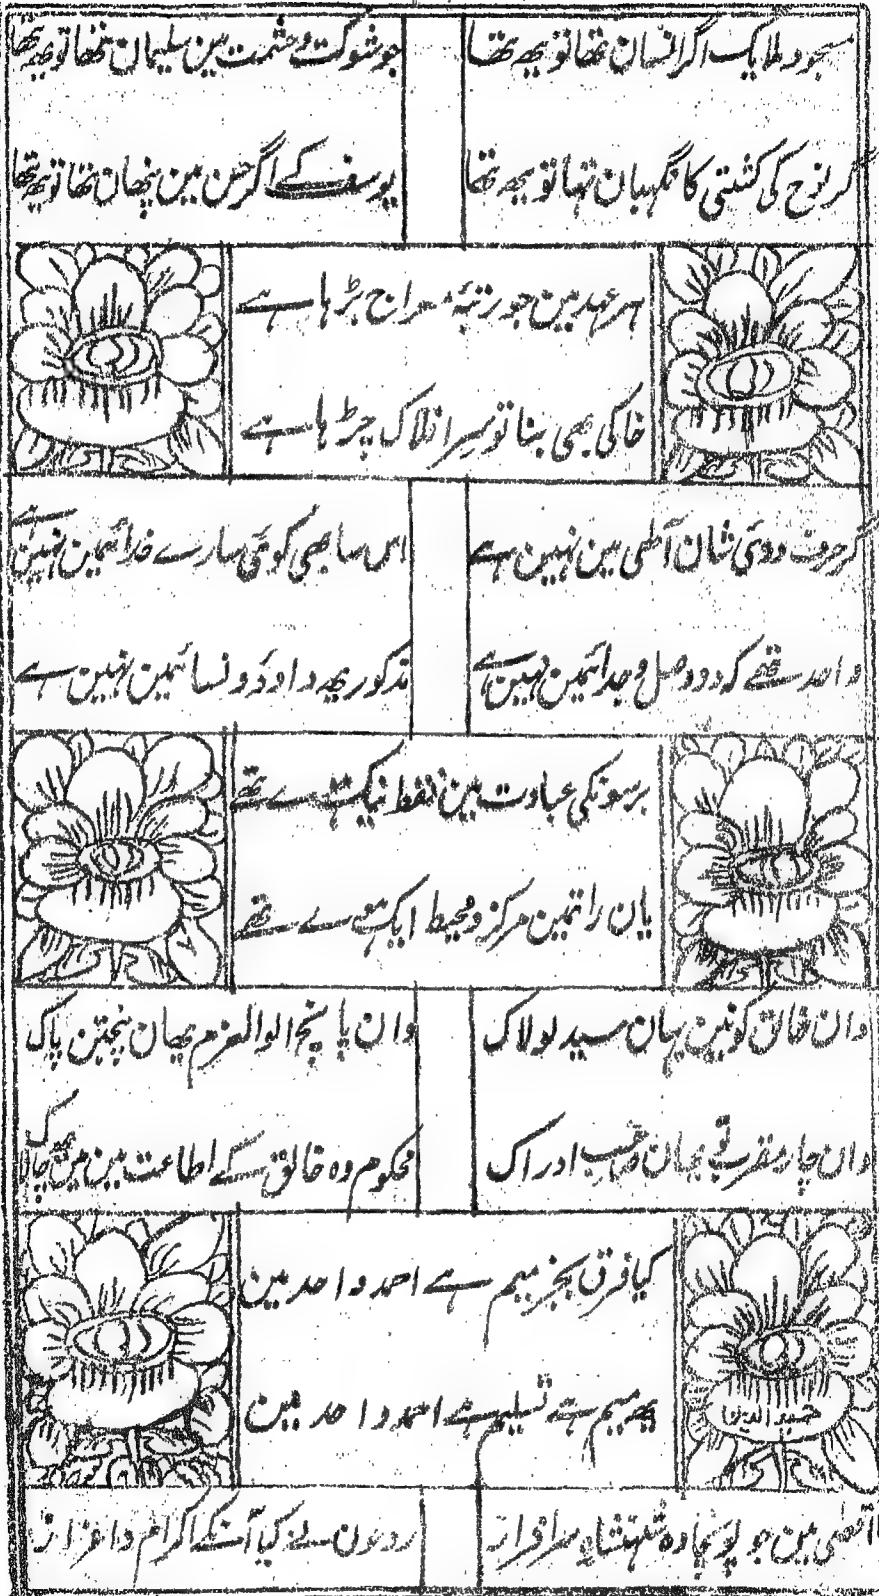 مسجود ملایک اگر انسان تھا تو یھہ تھا
جو شوکت و حشمت مین سلیمان تھا تو یھہ تھا
گر نوح کی کشتی کا نگہبان تہا تو یھہ تھا
یوسف کے اگر حسن مین پنھان تھا تو یھہ تھا
ہر عہد مین جو رتبۂ معراج بڑہا ہے
خاکی بھی بنا تو سر افلاک چڑہا ہے
گر حرف دوئی شان مین نہین ہے
اس سا بھی کوئی سارے خدائیمین نہین ہے
واحد تھے کہ دو وصل و جدائیمین نہین ہے
مذکور یھہ داود و نسائیمین نہین ہے
برسونکی عبادت مین فقط نیک تھے
یان راتمین مرکز و محیط ایک ہوے تھے
وان خالق کونین یہان سید لولاک
وان پانچ اوالعزم یھان پنجتن پاک
وان چار مقرب تو یھان صاحب ادراک
محکوم وہ خالق کے اطاعت مین مین
کیا فرق بجز میم ہے احمد و احد مین
یھہ میم ہے تسلیم ہے احمد و احد مین
اقصٰی مین جو پونہچا وہ شہنشاہ سرافراز
روحون نے کیا آنکے اکرام و اعزاز